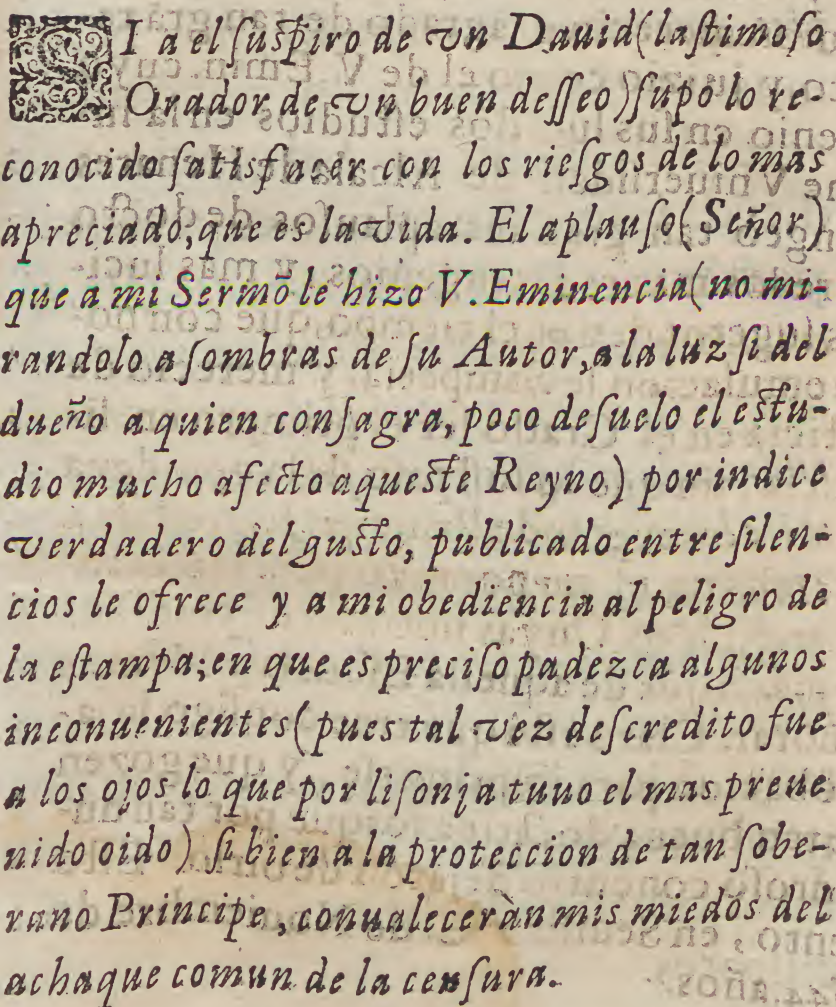 SI a el suspiro de vn Dauid (lastimoso
Orador de vn buen desseo) supo lo re-
conocido satisfacer con los riesgos de lo mas
apreciado, que es la vida. El aplauso (Señor)
que a mi Sermõ le hizo V. Eminencia (no mi-
randolo a sombras de su Autor, a la luz si del
dueño a quien consagra, poco desuelo el estu-
dio mucho afecto aqueste Reyno) por indice
verdadero del gusto, publicado entre silen-
cios le ofrece y a mi obediencia al peligro de
la estampa; en que es preciso padezca algunos
inconuenientes (pues tal vez descredito fue
a los ojos lo que por lisonja tuuo el mas preue
nido oido) si bien a la proteccion de tan sobe-
rano Principe, conualeceràn mis miedos del
achaque comun de la censura.